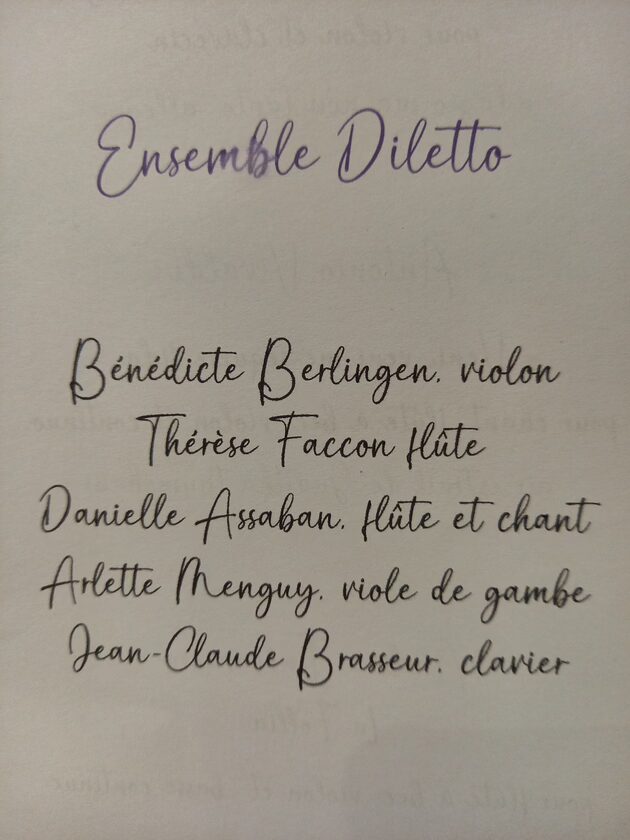 Ensemble Diletto
Bénédicte Berlingen, violon
Thérèse Faccon flûte
Danielle Assaban, flûte et chant
Arlette Menguy, viole de gambe
Jean-Claude Brasseur, clavier